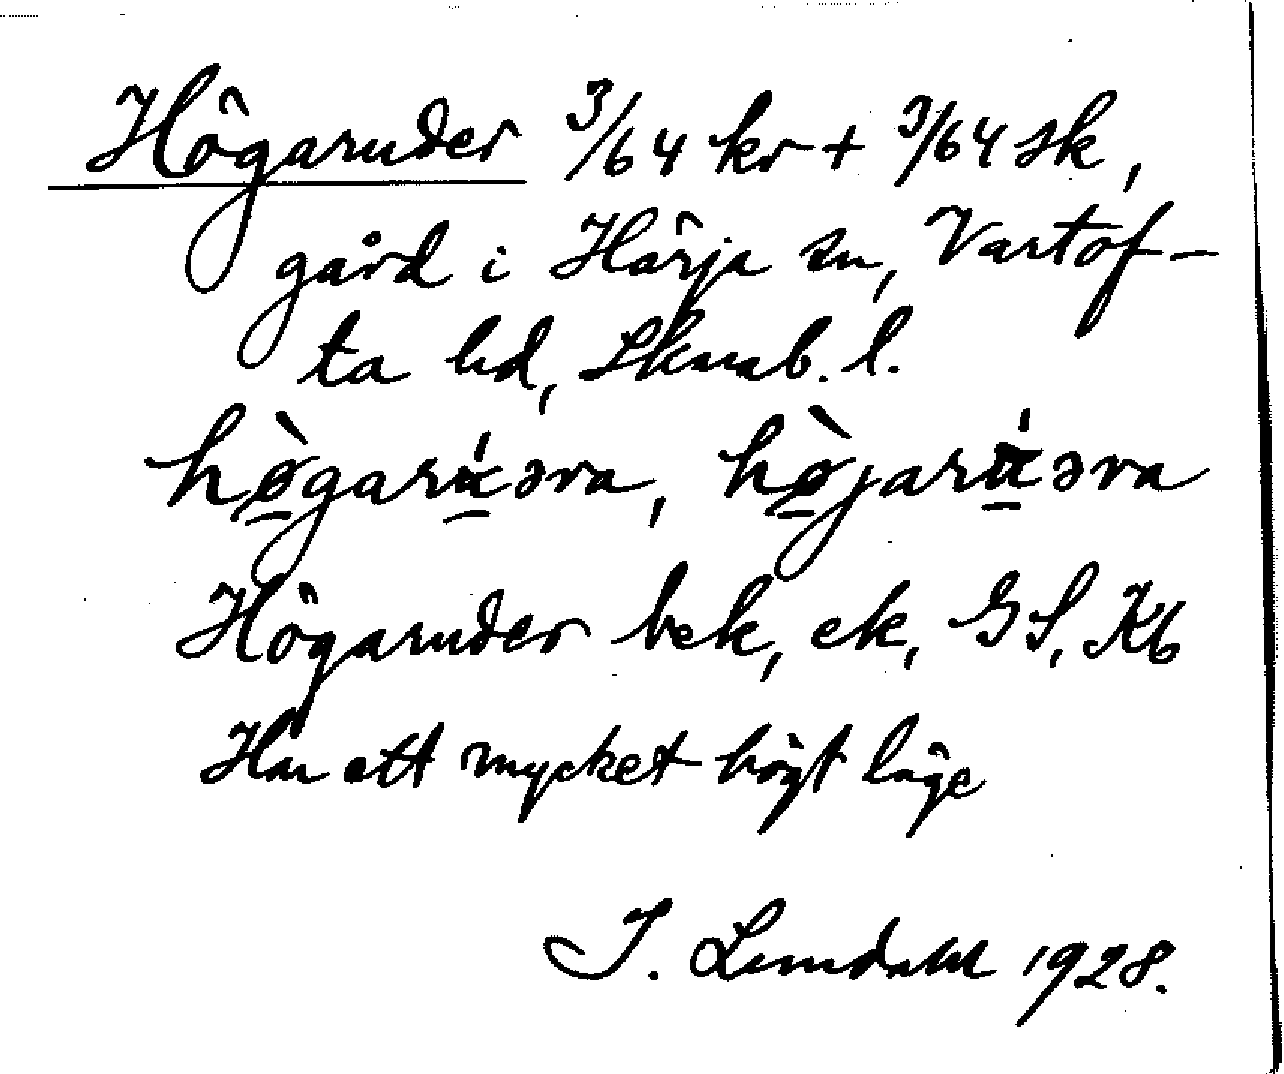 Högaruder 3/64 kr + 3/64 sk,
gård i Härja sn, Vartof-
ta hd, Skarab. l.
hø̀garu̇́əra, hø̀jaru̇́əra
Högaruder bek, ek, GS, Kb
Har ett mycket högt läge
I. Lundahl 1928.